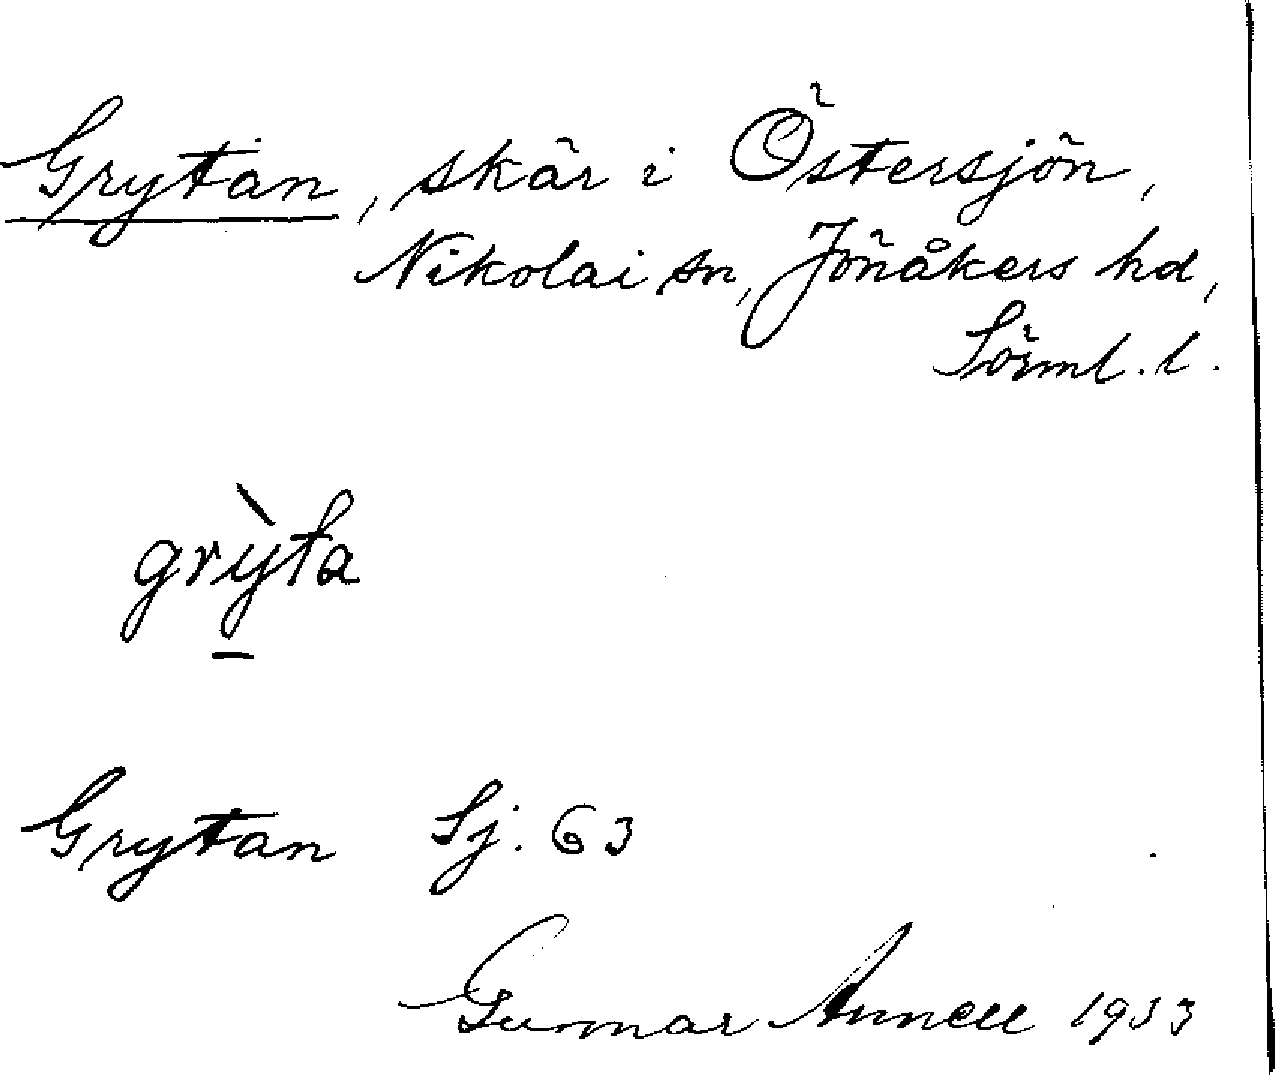 Grytan, skär i Östersjön,
Nikolai sn, Jönåkers hd,
Sörml. l.
grỳta
Grytan Sj. 63
Gunnar Annell 1933